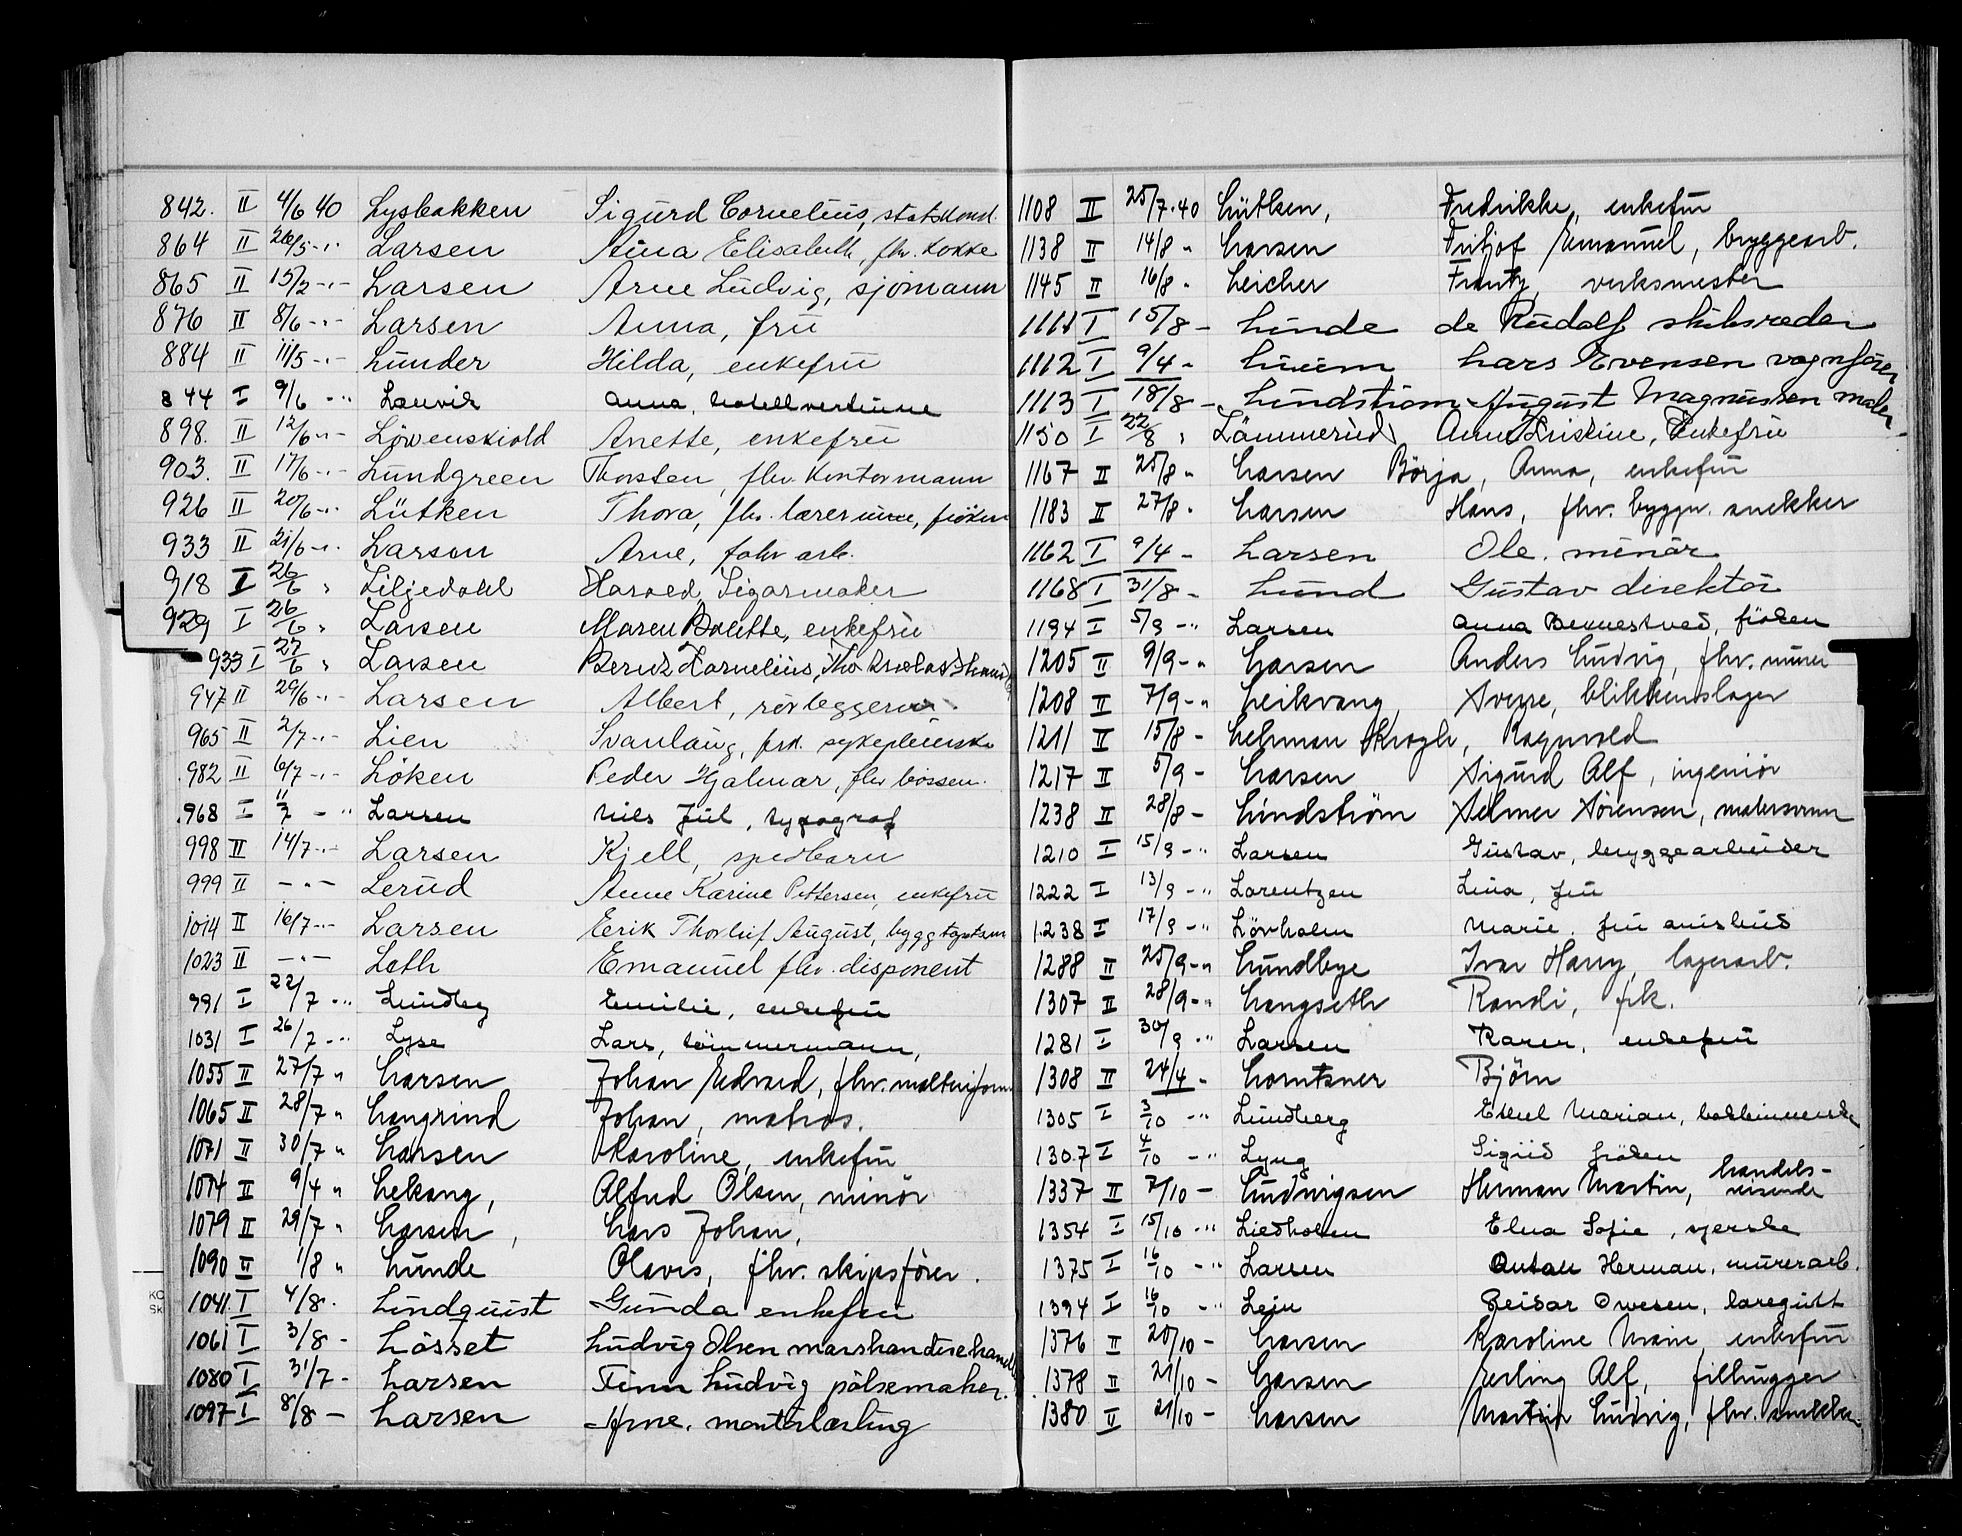 842. II 4/6 40 Lysbakken Sigurd Cornelius, statskond.
864 II 26/5 -"- Larsen Anna Elisabeth, fhv. kokke
865 II 15/2 -"- Larsen Arne Ludvig, sjömann
876 II 8/6 -"- Larsen Anna, fru
884 II 11/5 -"- Lunder Hilda, enkefru
844 I 9/6 -"- Lauvik Anna, hotellvertinne
898. II 12/6 -"- Löwenskiold Anette, enkefru
903. II 17/6 -"- Lundgreen Thorsten, fhv. kontormann
926 II 20/6 -"- Lütken Thora, fhv. lærerinne, fröken
933 II 21/6 -"- Larsen Arne, fabr arb.
918 I 26/6 " Liljedahl Harald, Sigarmaker
929 I 26/6 " Larsen Maren Bolette, enkefru
933 I 27/6 " Larsen Bernt Kornelius,
947 II 29/6 -"- Larsen Albert, rörleggersv.
965 II 2/7 -"- Lien Svanlaug, frk. sykepleierske
982 II 6/7 -"- Löken Peder Hjalmar, fhv bössem.
968 I 11/7 -" Larsen Nils Jul, typograf
998 II 14/7 -"- Larsen Kjell, spedbarn
999 II -"- Lerud Anne Karine Pettersen, enkefru
1014 II 16/7 -"- Larsen Erik Thorluf August, byggtaptsm
1023 II -"- Leth Emanuel fhv. disponent
991 I 22/7 -" Lundby Emilie, enkefru
1031 I 26/7 -" Lyse Lars, tömmermann,
1055 II 27/7 " Larsen Johan Edvard, fhv.
1065 II 28/7 " Langrind Johan, matros.
1071 II 30/7 " Larsen Karoline, enkefru
1074 II 9/4 " Lekang, Alfred Olsen, minör
1079 II 29/7 " Larsen, Lars Johan,
1090 II 1/8 " Lunde Olavus, fhv. skipsförer.
1041 I 4/8 - Lindquist Gunda enkefru
1061 I 3/8 - Lösset Ludvig Olsen marshandisehandl
1080 I 31/7 - Larsen Finn Ludvig pölsemaker.
1097 I 8/8 - Larsen Arne. montörlærling
1108 II 25/7.40 Lütken, Fredrikke, enkefru
1138 II 14/8 " Larsen Fritjof Emanuel, bryggearb.
1145 II 16/8 " Leicher Frantz, verksmester
1111 I 15/8 - Lunde de Rudolf skibsreder
1112 I 9/4 - Luum Lars Evensen vognförer
1113 I 18/8 - Lundström August Magnussen maler
1150 I 22/8 " Lämmerud Anne Kristine, Enkefru
1167 II 25/8 " Larsen Börja, Anna, enkefru
1183 II 27/8 " Larsen Hans, fhv. byggn. snekker
1162 I 9/4 - Larsen Ole. minör
1168 I 31/8 - Lund Gustav direktör
1194 I 5/9 -" Larsen Anna Bennestved, fröken
1205 II 9/9 -" Larsen Anders Ludvig, fhv. murer
1208 II 7/9 -" Leikvang, Sverre, blikkenslager
1211 II 15/8 - Lehman Skragh, Ragnvald
1217 II 5/9 - Larsen Sigurd Alf, ingeniör
1238 II 28/8 - Lindström Selmer Sörensen, malersvenn
1210 I 15/9 -" Larsen Gustav, bryggearbeider
1222 I 13/9 -" Lorentzen Lina, fru
1238 I 17/9 -" Lövholm Marie, fru
1288 II 25/9 -" Lundbye Ivar Harry, lagerarb.
1307 II 28/9 -" Langseth Randi, frk.
1281 I 30/9 -" Larsen Karen, enkefru
1308 II 24/4 - Lorntsner Björn
1305 I 3/10 -" Lundberg Ethel Marian,
1307 I 4/10 -" Lyng Sigrid fröken
1337 II 7/10 - Ludvigsen Herman Martin, handels-
reisende
1354 I 15/10 -" Liedholm Elna Sofie,
1375 I 16/10 -" Larsen Anton Herman, murerarb.
1394 I 16/10 -" Leju Reidar Owesen, laregutt
1376 II 20/10 - Larsen Karoline Marie, enkefru
1378 II 21/10 - Larsen Erling Alf, filhugger
1380 II 21/10 - Larsen Martin Ludvig, fhv. snekker